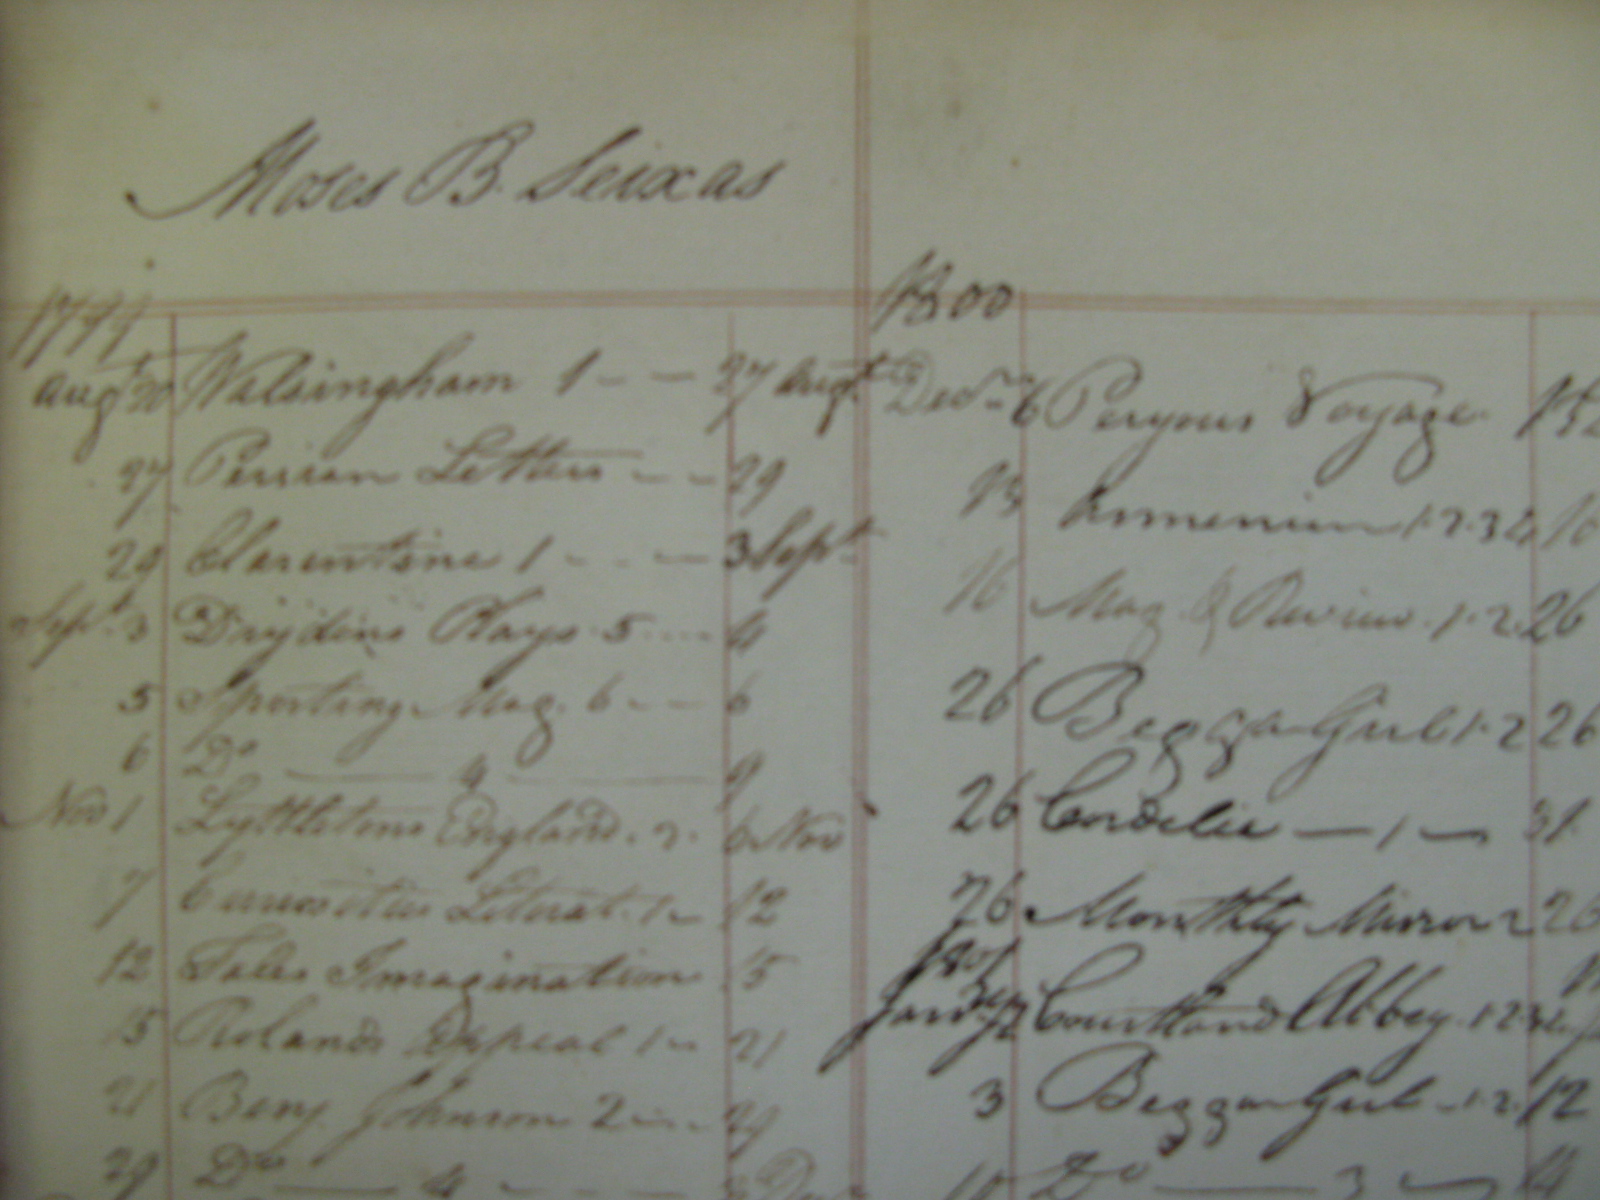 Moses B. Seixas
1799
Augt 20 Walsingham 1 - - - 27 Augt
27 Persian Letters - - - 29
29 Clarentine 1 - - - 3 Sept
Sept 3 Drydens Plays 5 - - - 4
5 Sporting Mag. 6 - - - 6
6 Do 4 9
Nov 1 Lyttletons England. 2. 6 Nov
7 Curiosities Literat. 1 - 12
12 Tales Imagination 15
15 Rolands Appeal 1 - 21
21 Benj. Johnson 2 - - - 29
29 Do 4
1800
Decr 6 Voyage
13 Armenian 1.2.3.4 16
16 Mag. & Review. 1.2. 26
26 Beggar Girl 1.2 26
26 Cordelia — 1 — 31
26 Monthly Mirror 2 26
1801
Jany 2 Courtland Abbey. 1.2.3.4
3 Beggar Girl - 1.2. 12
Do — 3 — 14